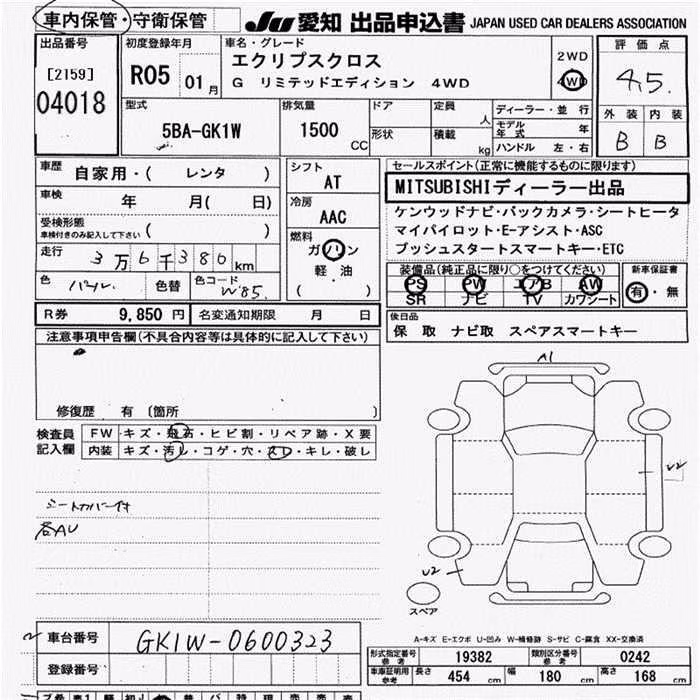 車内保管・守衛保管
JU 愛知 出品申込書 JAPAN USED CAR DEALERS ASSOCIATION
出品番号
[2159]
04018
初度登録年月
R05 01月
車名・グレード
エクリプスクロス
G リミテッドエディション 4WD
2WD
4WD
評価点
4.5.
外装 内装
B B
型式
5BA-GK1W
排気量
1500 CC
ドア
形状
定員 人
積載 kg
ディーラー・並行
モデル年式 年
ハンドル 左・右
車歴
自家用・( レンタ )
車検
年 月( 日)
受検形態
車検付きのみ記入して下さい ( )
走行
3万6千380km
色
パール
色替
色コード
W85.
シフト
AT
冷房
AAC
燃料
ガソリン
軽・油
( )
セールスポイント(正常に機能するものに限ります)
MITSUBISHIディーラー出品
ケンウッドナビ・バックカメラ・シートヒータ
マイパイロット・E-アシスト・ASC
プッシュスタートスマートキー・ETC
装備品(純正品に限り○をつけてください)
PS PW エアB AW
SR ナビ TV カワシート
新車保証書
有・無
R券 9,850円
名変通知期限 月 日
後日品
保 取 ナビ取 スペアスマートキー
注意事項申告欄(不具合内容等は具体的に記入して下さい)
修復歴 有 (箇所 )
検査員
記入欄
FW キズ・飛石・ヒビ割・リペア跡・X要
内装 キズ・汚レ・コゲ・穴・スレ・キレ・破レ
シートカバー付
各AU
A1
U2
U2
スペア
A-キズ E-エクボ U-凹み W-補修跡 S-サビ C-腐食 XX-交換済
車台番号
GK1W-0600323
登録番号
形式指定番号
参考
19382
類別区分番号
参考
0242
車庫証明用
参考
長さ 454 cm
幅 180 cm
高さ 168 cm